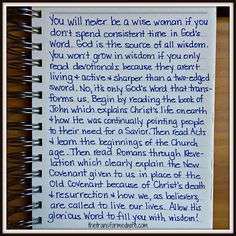 You will never be a wise woman if you
don't spend consistent time in God's
Word. God is the source of all wisdom.
You won't grow in wisdom if you only
read devotionals because they aren't
living & active & sharper than a two-edged
sword. No, it's only God's Word that trans-
forms us. Begin by reading the book of
John which explains Christ's life on earth
& how He was continually pointing people
to their need for a Savior. Then read Acts
& learn the beginnings of the Church
age. Then read Romans through Reve-
lation which clearly explain the New
Covenant given to us in place of the
Old Covenant because of Christ's death
& resurrection & how we, as believers,
are called to live our lives. Allow His
glorious Word to fill you with wisdom!
thetransformedwife.com